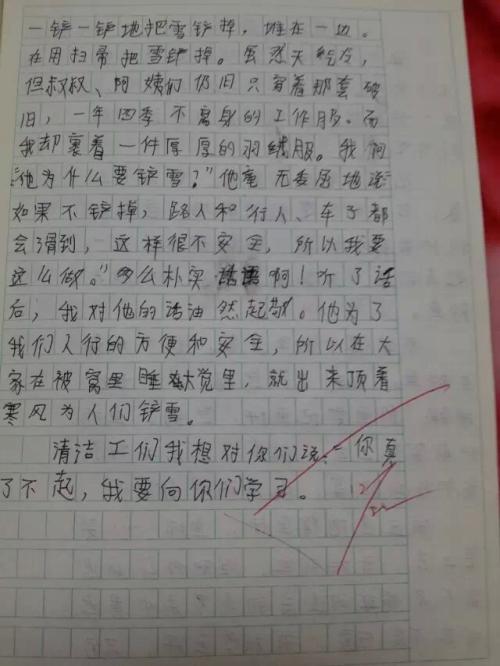 一铲一铲地把雪铲掉，堆在一边。
在用扫帚把雪铲掉。虽然天气冷，
但叔叔、阿姨们仍旧只穿着那套破
旧，一年四季不离身的工作服。而
我却裹着一件厚厚的羽绒服。我问
“他为什么要铲雪？”他毫无委屈地说
如果不铲掉，路人和行人、车子都
会滑到，这样很不安全，所以我要
这么做。”多么朴实话语啊！听了话
后，我对他的话油然起敬。他为了
我们人行的方便和安全，所以在大
家在被窝里睡大觉里，就出来顶着
寒风为人们铲雪。
清洁工们我想对你们说：“你真
了不起，我要向你们学习。
12/22